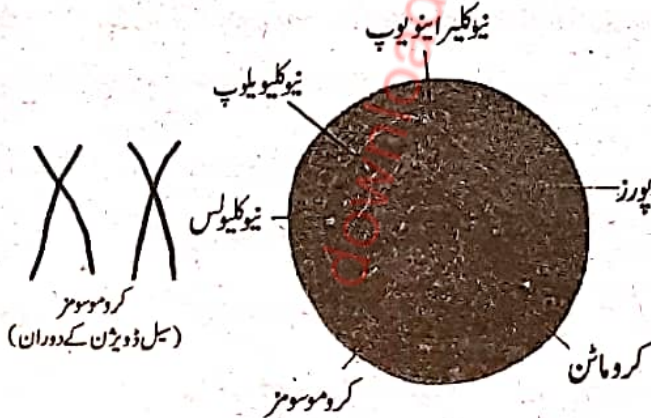 نیوکلیر اینویلوپ
نیوکلیویلوپ
پورز
نیوکلیولس
کروموسومز
(سیل ڈویژن کے دوران)
کروماٹن
کروموسومز
download